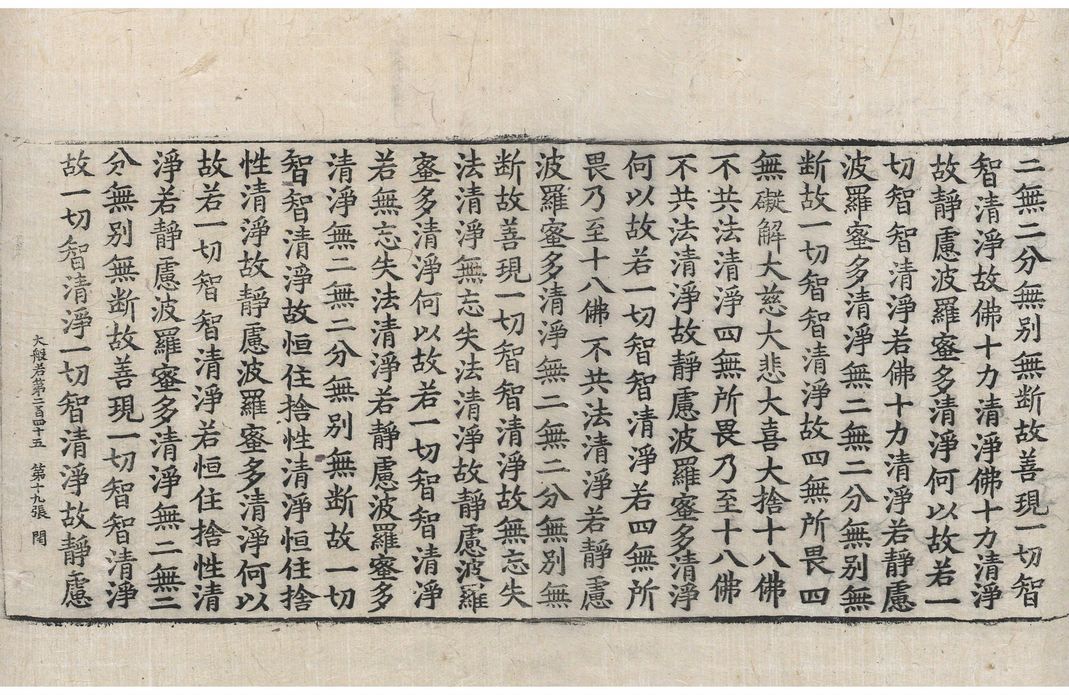 二無二分無別無断故善現一切智
智清淨故佛十力清淨佛十力清淨
故静慮波羅蜜多清淨何以故若一
切智智清淨若佛十力清淨若静慮
波羅蜜多清淨無二無二分無別無
断故一切智智清淨故四無所畏四
無礙解大慈大悲大喜大捨十八佛
不共法清淨四無所畏乃至十八佛
不共法清淨故静慮波羅蜜多清淨
何以故若一切智智清淨若四無所
畏乃至十八佛不共法清淨若静慮
波羅蜜多清淨無二無二分無別無
断故善現一切智智清淨故無忘失
法清淨無忘失法清淨故静慮波羅
蜜多清淨何以故若一切智智清淨
若無忘失法清淨若静慮波羅蜜多
清淨無二無二分無別無断故一切
智智清淨故恒住捨性清淨恒住捨
性清淨故静慮波羅蜜多清淨何以
故若一切智智清淨若恒住捨性清
淨若静慮波羅蜜多清淨無二無二
分無別無断故善現一切智智清淨
故一切智清淨一切智清淨故静慮
大般若第二百四十五 第十九張 閏